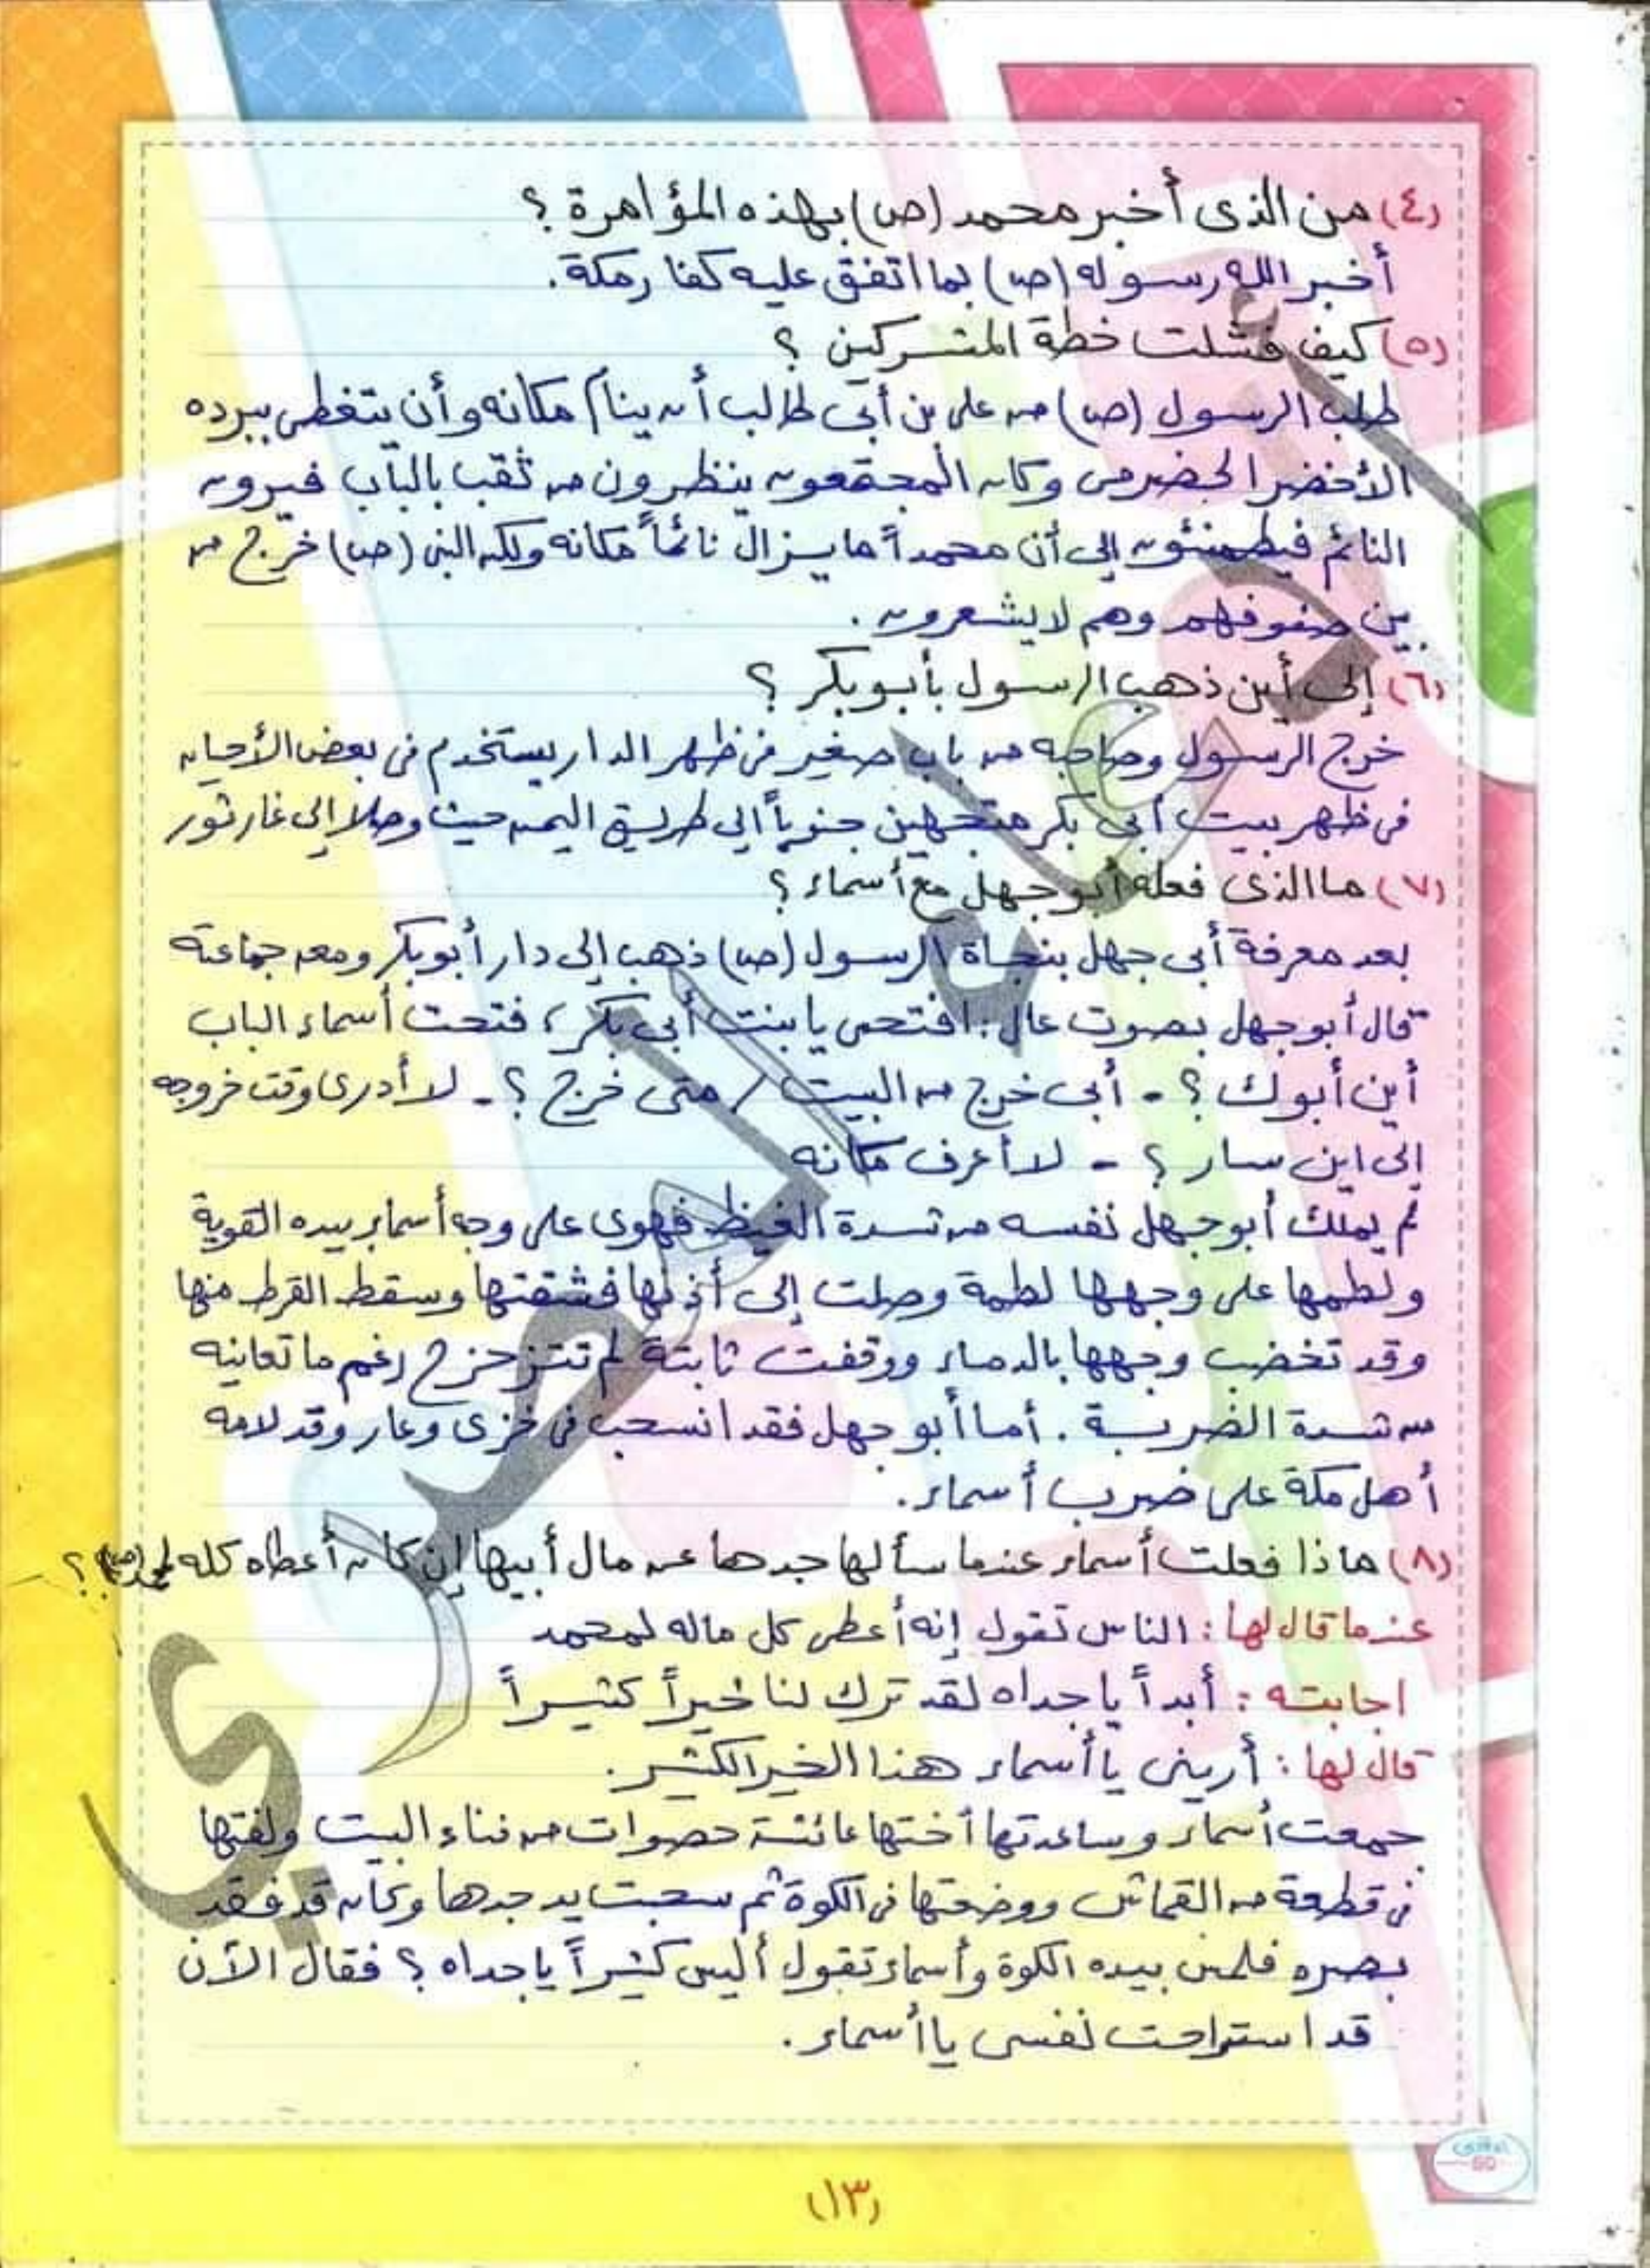 (٤) من الذى أخبر محمد (ص) بهذه المؤامرة ؟
أخبر الله رسوله (ص) بما اتفق عليه كفار مكة.
(٥) كيف فشلت خطة المشركين ؟
طلب الرسول (ص) من على بن أبى طالب أن ينام مكانه وأن يتغطى ببرده
الأخضر الحضرمى وكان المجتمعون ينظرون من ثقب بالباب فيرون
النائم فيطمئنون إلى أن محمداً ما يزال نائماً مكانه ولكن النبى (ص) خرج من
بين صفوفهم وهم لا يشعرون .
(٦) إلى أين ذهب الرسول بأبو بكر ؟
خرج الرسول وصاحبه من باب صغير فى ظهر الدار يستخدم فى بعض الأحيان
فى ظهر بيت أبى بكر متجهين جنوباً إلى طريق اليمن حيث وصلا إلى غار ثور
(٧) ما الذى فعله أبو جهل مع أسماء ؟
بعد معرفة أبى جهل بنجاة الرسول (ص) ذهب إلى دار أبو بكر ومعه جماعته
قال أبو جهل بصوت عال : افتحى يا بنت أبى بكر ، فتحت أسماء الباب
أين أبوك ؟ - أبى خرج من البيت / متى خرج ؟ - لا أدرى وقت خروجه
إلى اين سار ؟ - لا أعرف مكانه
لم يملك أبو جهل نفسه من شدة الغيظ فهوى على وجه أسماء بيده القوية
ولطمها على وجهها لطمة وصلت إلى أذنها فشقتها وسقط القرط منها
وقد تخضب وجهها بالدماء ووقفت ثابتة لم تتزحزح رغم ما تعانيه
من شدة الضربة . أما أبو جهل فقد انسحب فى خزى وعار وقد لامه
أهل مكة على ضرب أسماء .
(٨) ماذا فعلت أسماء عندما سألها جدها عن مال أبيها إن كان أعطاه كله لمحمد (ص) ؟
عندما قال لها : الناس تقول إنه أعطى كل ماله لمحمد
اجابته : أبداً يا جداه لقد ترك لنا خيراً كثيراً
قال لها : أرينى يا أسماء هذا الخير الكثير .
جمعت أسماء وساعدتها أختها عائشة حصوات من فناء البيت ولفتها
فى قطعة من القماش ووضعتها فى الكوة ثم سحبت يد جدها وكان قد فقد
بصره فلمس بيده الكوة وأسماء تقول أليس كثيراً يا جداه ؟ فقال الآن
قد استراحت نفسى يا أسماء .
(١٣)